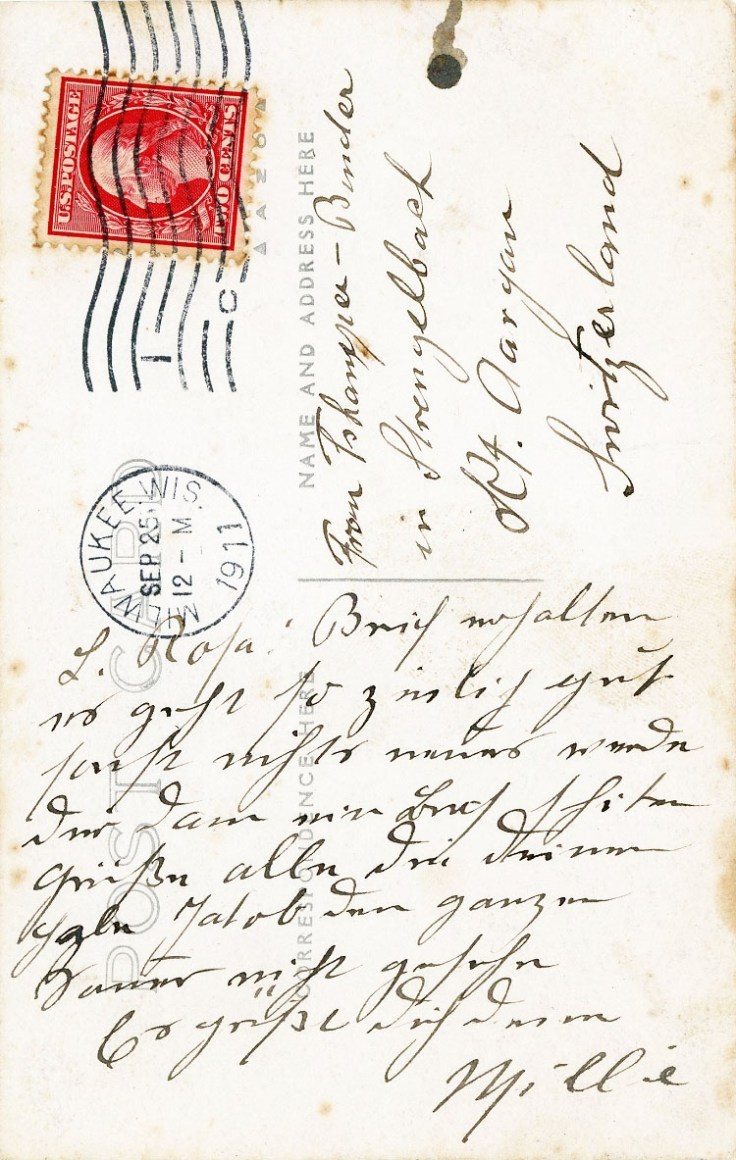 U.S. POSTAGE
TWO CENTS
MILWAUKEE, WIS.
SEP 25
12 - M
1911
POST CARD
NAME AND ADDRESS HERE
CORRESPONDENCE HERE
in Strengelbach
Kt. Aargau
Switzerland
L. Rosa! Brief erhalten
es geht so zimlich gut
sonst nichts neues werde
dir dann ein Brief schiken
Grüße alle die deinen
Jakob den ganzen
nicht gesehn
Es grüßt dich deine
Millie